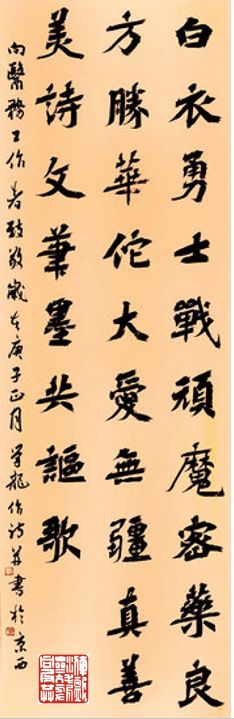 白衣勇士戰頑魔密藥良
方勝華佗大愛無疆真善
美詩文筆墨共謳歌
向醫務工作者致敬歲在庚子正月學龍作詩並書於京西